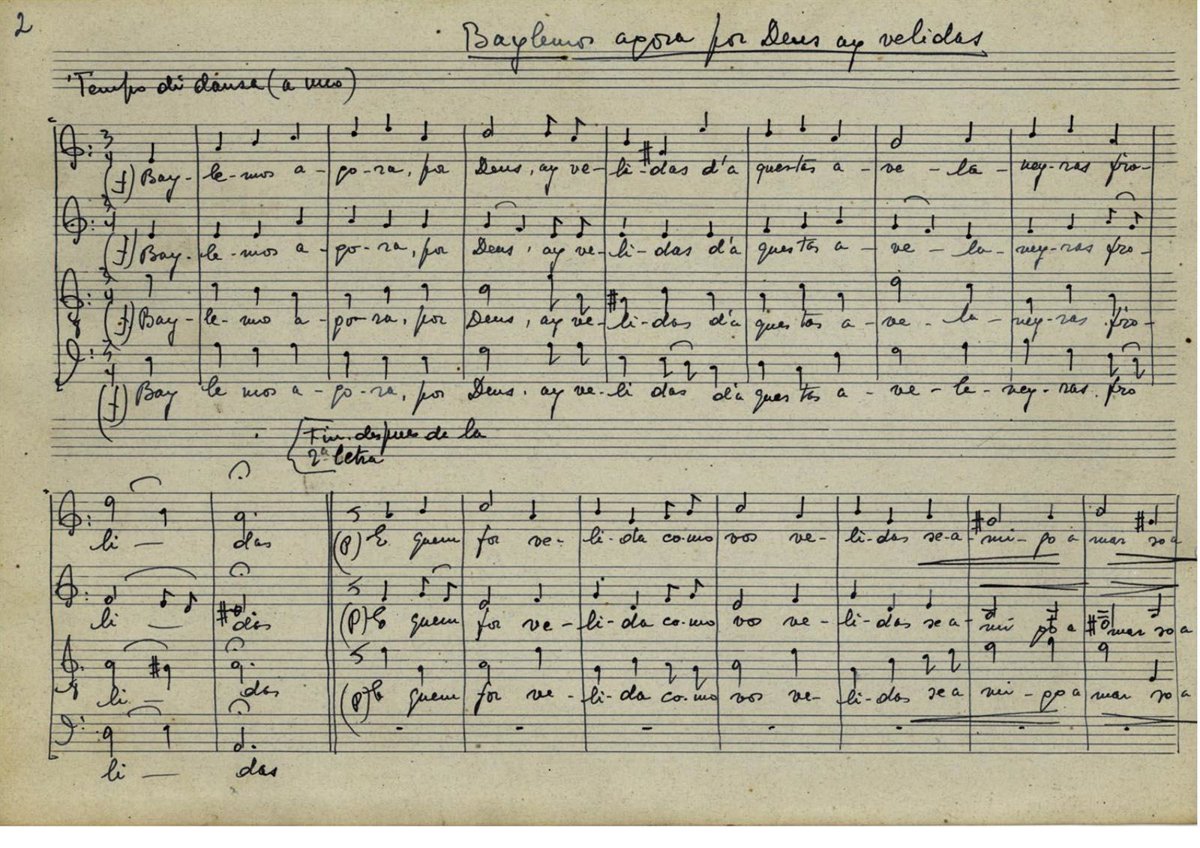 2
Baylemos agora por Deus ay velidas
Tempo di danza (a uno)
(f) Bay- le-mos a- go-ra, por Deus, ay ve- li-das d'a questas a- ve- la- ney-ras fro-
(f) Bay- le-mos a- go-ra, por Deus, ay ve- li-das d'a questas a- ve- la- ney-ras fro-
(f) Bay- le-mo a- go-ra, por Deus, ay ve- li-das d'a questas a- ve- la- ney-ras fro-
(f) Bay le mos a- go-ra, por Deus. ay ve- li das d'a ques tas a- ve- le- ney-ras. fro
Fin. despues de la
2ª letra
li — das (P) E quem for ve- li-da co-mo vos ve- li-das se-a- mi-go a mar so a
li — das (P) E quem for ve- li-da co-mo vos ve- li-das se a- mi go a mar so a
li — das (P) E quem for ve- li-da co-mo vos ve- li-das se a mi-go a mar so a
li — das